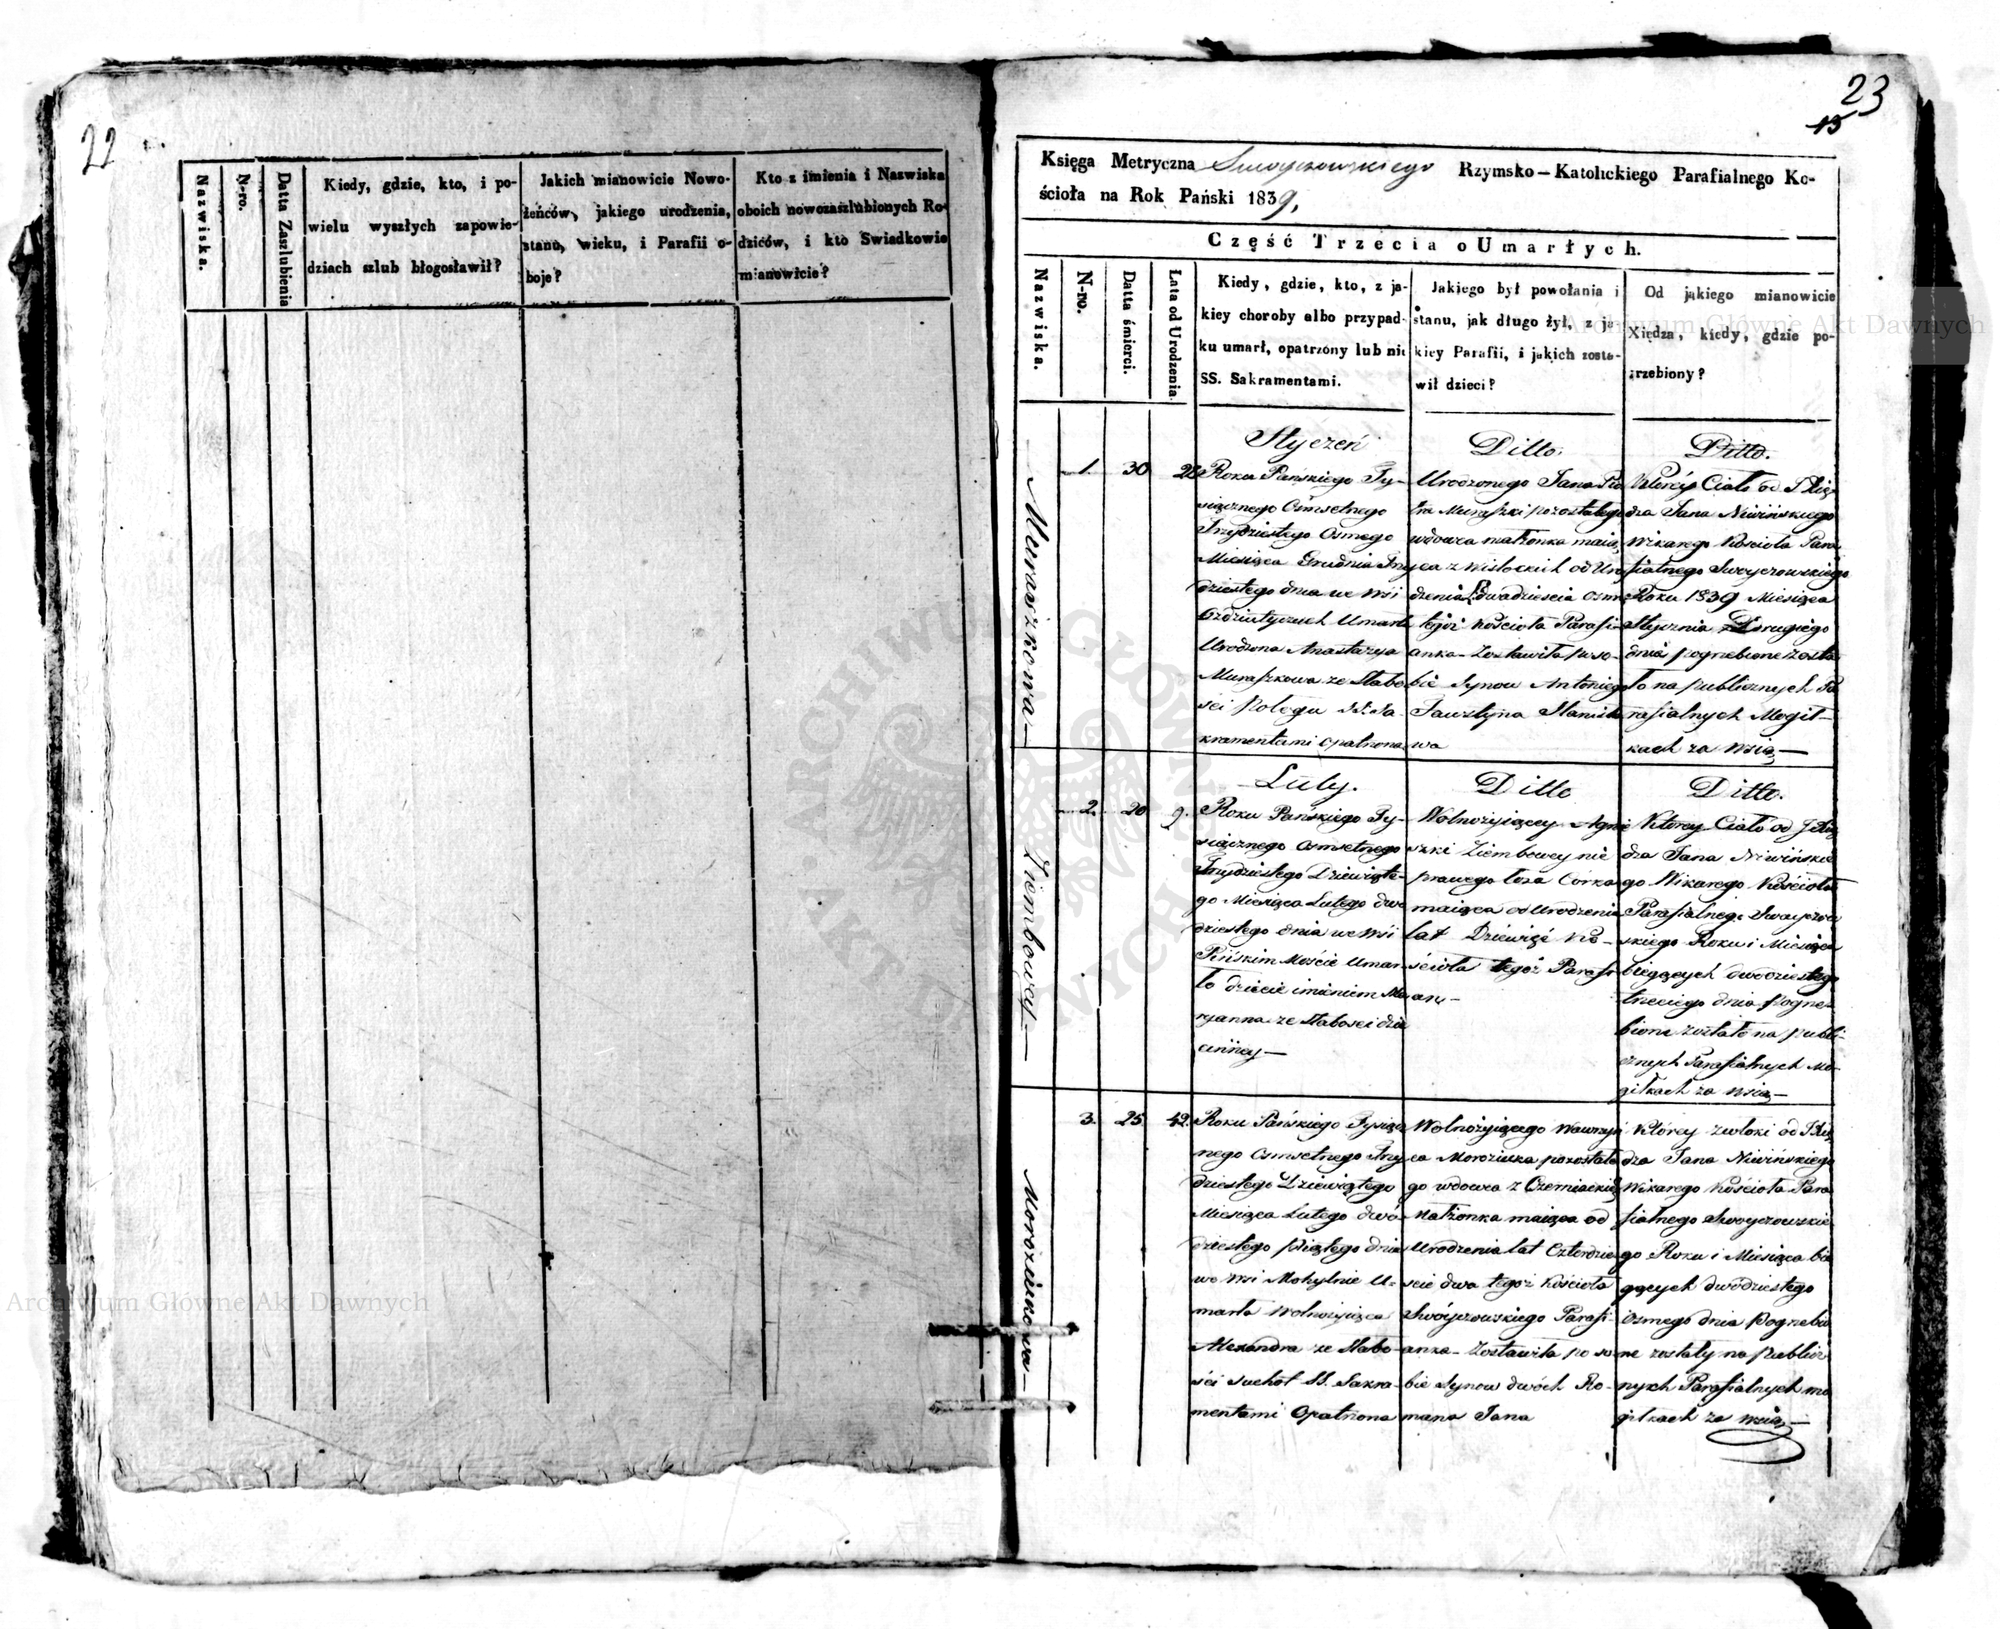 22
Nazwiska.
N-ro.
Datta Zaślubienia
Kiedy, gdzie, kto, i po-
wielu wyszłych zapowie-
dziach szlub błogosławił?
Jakich mianowicie Nowo-
żeńców, jakiego urodzenia,
stanu, wieku, i Parafii o-
boje?
Kto z imienia i Nazwiska
oboich nowozaszlubionych Ro-
dziców, i kto Swiadkowie
mianowicie?
23
15
Księga Metryczna Swoyczowskiego Rzymsko-Katolickiego Parafialnego Ko-
ścioła na Rok Pański 1839,
Część Trzecia o Umarłych.
Nazwiska.
N-ro.
Datta śmierci.
Lata od Urodzenia.
Kiedy, gdzie, kto, z ja-
kiey choroby albo przypad-
ku umarł, opatrzony lub nie
SS. Sakramentami.
Jakiego był powołania i
stanu, jak długo żył, z ja
kiey Parafii, i jakich zosta-
wił dzieci?
Od jakiego mianowicie
Xiędza, kiedy, gdzie po-
grzebiony?
Muraszkowa
1.
30
28
Styczeń
Roku Pańskiego Ty-
siącznego Ósmsetnego
Trzydziestego Osmego
Miesiąca Grudnia Trzy
dziestego dnia we Wsi
Umarła
Urodzona Anastazya
Muraszkowa ze Słabo
ści Połogu SS. Sa-
kramentami opatrzona
Ditto.
Urodzonego Jana Pio
tra Muraszki pozostałego
wdowca małżonka maią
ca z Wisłockich od Uro
dzenia dwadzieścia osm
tegoż Kościoła Parafi-
anka Zostawiła po so-
bie Synow Antoniego
Faustyna Stanisła
wa
Ditto.
Którey Ciało od JXię
dza Jana Niwińskiego
Wikarego Kościoła Para
fialnego Swoyczowskiego
Roku 1839 Miesiąca
Stycznia Drugiego
dnia pogrzebione zosta
ło na publicznych Pa
rafialnych Mogił-
kach za Wsią
Ziembowey
2.
20
9.
Luty.
Roku Pańskiego Ty-
siącznego Osmsetnego
Trzydziestego Dziewiąte-
go Miesiąca Lutego dwu
dziestego dnia we Wsi
Pińskim Moście Umar
ło dziecie imieniem Ma
ryanna ze Słabości dzie
cinney
Ditto
Wolnożyjącey Agnie
szki Ziembowey nie
prawego łoża Córka
maiąca od Urodzenia
lat Dziewięć Ko-
ścioła tegoż Parafi
an-
Ditto.
Którey Ciało od JXię
dza Jana Niwińskie
go Wikarego Kościoła
Parafialnego Swoyczow
skiego Roku i Miesiąca
bieżących dwódziestego
trzeciego dnia pogrze-
bione zostało na publi-
cznych Parafialnych Mo-
giłkach za Wsią
Moroziukowa
3.
25
42.
Roku Pańskiego Tysiącz
nego Osmsetnego Trzy
dziestego Dziewiątego
Miesiąca Lutego dwó
dziestego piątego dnia
we Wsi Mohylnie U-
marła Wolnożyjąca
Alexandra ze Słabo-
ści suchot SS. Sakra-
mentami Opatrzona
Wolnożyjącego Wawrzyń
ca Moroziuka pozostałe
go wdowca z Czerniackich
Małżonka maiąca od
Urodzenia lat Czterdzie
ście dwa tegoż Kościoła
Swóyczowskiego Parafi-
anka Zostawiła po so
bie Synow dwóch Ro-
mana Jana
Którey zwłoki od JXię
dza Jana Niwińskiego
Wikarego Kościoła Para
fialnego Swoyczowskie
go Roku i Miesiąca bie
żących dwódziestego
ósmego dnia Pogrzebio
ne zostały na Publicz
nych Parafialnych mo
giłkach za wsią
Archiwum Główne Akt Dawnych
Archiwum Główne Akt Dawnych
ARCHIWUM GŁÓWNE AKT DAWNYCH